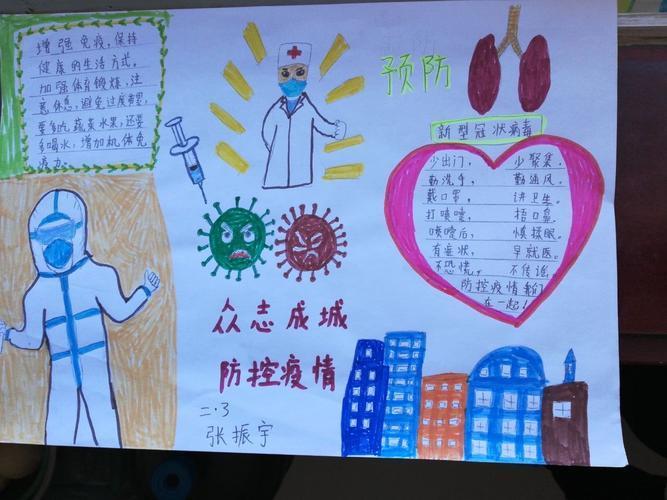 增强免疫，保持
健康的生活方式。
加强体育锻炼，注
意休息，避免过度劳累，
要多吃蔬菜水果，还要
多喝水，增加机体免
疫力。
预防
新型冠状病毒
少出门， 少聚集。
勤洗手， 勤通风。
戴口罩， 讲卫生。
打喷嚏， 捂口鼻。
喷嚏后， 慎揉眼。
有症状， 早就医。
不恐慌， 不传谣。
防控疫情我们
在一起！
众志成城
防控疫情
二·3
张振宇